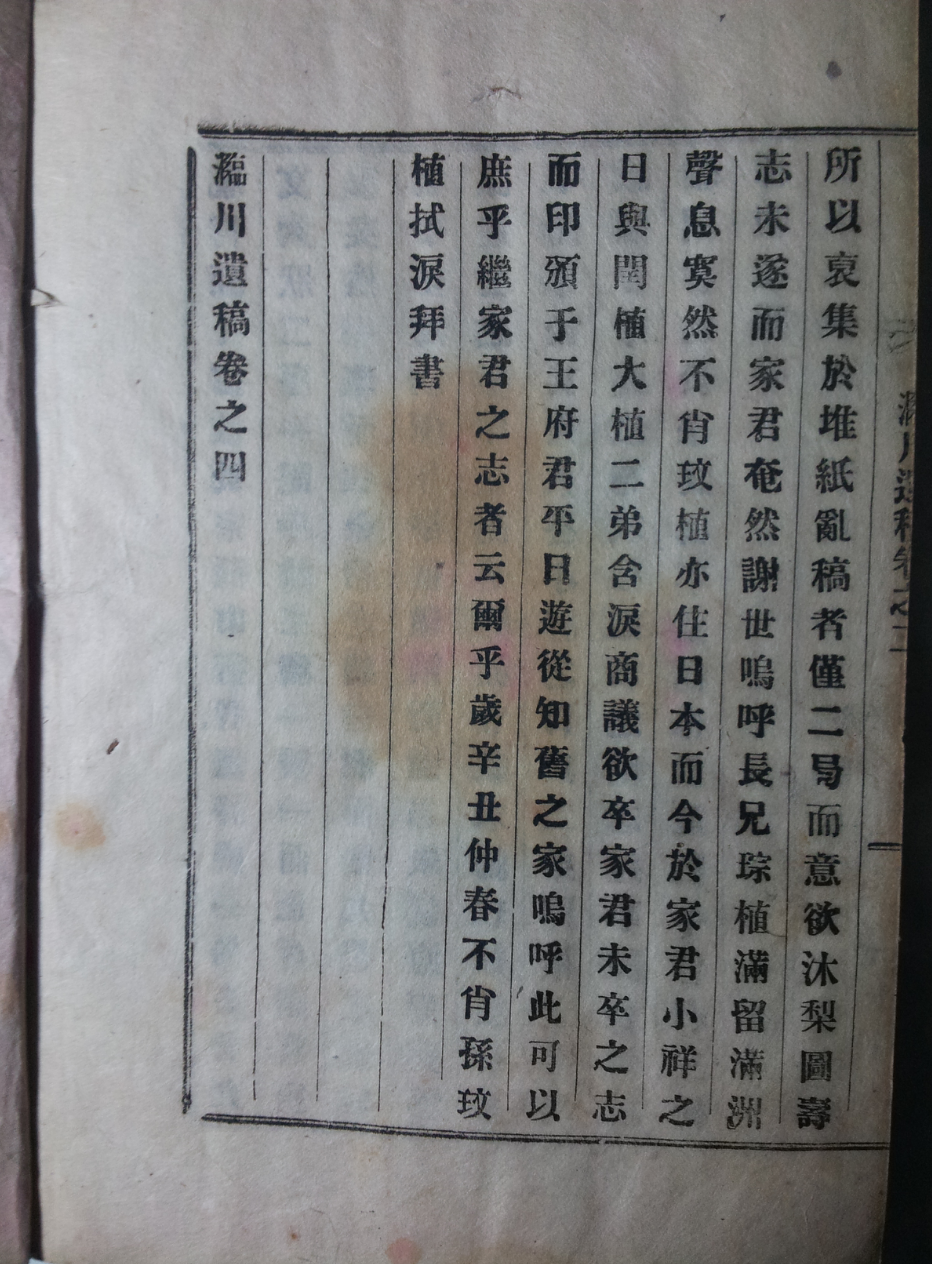 川遺稿卷之二
所以裒集於堆紙亂稿者僅二号而意欲沐梨圖壽
志未遂而家君奄然謝世嗚呼長兄琮植滿留滿洲
聲息寞然不肖玟植亦住日本而今於家君小祥之
日與閏植大植二弟含淚商議欲卒家君未卒之志
而印頒于王府君平日遊從知舊之家嗚呼此可以
庶乎繼家君之志者云爾乎歲辛丑仲春不肖孫玟
植拭淚拜書
瀶川遺稿卷之四